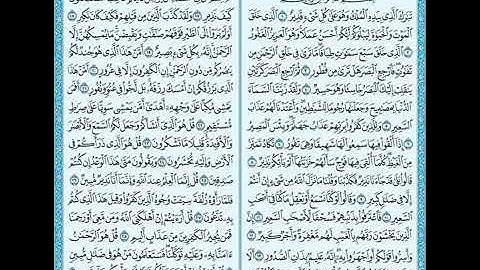 تَبَٰرَكَ ٱلَّذِي بِيَدِهِ ٱلْمُلْكُ وَهُوَ عَلَىٰ كُلِّ شَيْءٍ قَدِيرٌ ١ ٱلَّذِي خَلَقَ
ٱلْمَوْتَ وَٱلْحَيَوٰةَ لِيَبْلُوَكُمْ أَيُّكُمْ أَحْسَنُ عَمَلًا وَهُوَ ٱلْعَزِيزُ ٱلْغَفُورُ ٢
ٱلَّذِي خَلَقَ سَبْعَ سَمَٰوَٰتٍ طِبَاقًا مَّا تَرَىٰ فِي خَلْقِ ٱلرَّحْمَٰنِ مِن
تَفَٰوُتٍ فَٱرْجِعِ ٱلْبَصَرَ هَلْ تَرَىٰ مِن فُطُورٍ ٣ ثُمَّ ٱرْجِعِ ٱلْبَصَرَ كَرَّتَيْنِ
يَنقَلِبْ إِلَيْكَ ٱلْبَصَرُ خَاسِئًا وَهُوَ حَسِيرٌ ٤ وَلَقَدْ زَيَّنَّا ٱلسَّمَآءَ
ٱلدُّنْيَا بِمَصَٰبِيحَ وَجَعَلْنَٰهَا رُجُومًا لِّلشَّيَٰطِينِ وَأَعْتَدْنَا لَهُمْ عَذَابَ
ٱلسَّعِيرِ ٥ وَلِلَّذِينَ كَفَرُوا۟ بِرَبِّهِمْ عَذَابُ جَهَنَّمَ وَبِئْسَ ٱلْمَصِيرُ
٦ إِذَآ أُلْقُوا۟ فِيهَا سَمِعُوا۟ لَهَا شَهِيقًا وَهِيَ تَفُورُ ٧ تَكَادُ تَمَيَّزُ
مِنَ ٱلْغَيْظِ كُلَّمَآ أُلْقِيَ فِيهَا فَوْجٌ سَأَلَهُمْ خَزَنَتُهَآ أَلَمْ يَأْتِكُمْ نَذِيرٌ ٨
قَالُوا۟ بَلَىٰ قَدْ جَآءَنَا نَذِيرٌ فَكَذَّبْنَا وَقُلْنَا مَا نَزَّلَ ٱللَّهُ مِن شَيْءٍ إِنْ أَنتُمْ
إِلَّا فِي ضَلَٰلٍ كَبِيرٍ ٩ وَقَالُوا۟ لَوْ كُنَّا نَسْمَعُ أَوْ نَعْقِلُ مَا كُنَّا فِيٓ أَصْحَٰبِ
ٱلسَّعِيرِ ١٠ فَٱعْتَرَفُوا۟ بِذَنۢبِهِمْ فَسُحْقًا لِّأَصْحَٰبِ ٱلسَّعِيرِ ١١ إِنَّ
ٱلَّذِينَ يَخْشَوْنَ رَبَّهُم بِٱلْغَيْبِ لَهُم مَّغْفِرَةٌ وَأَجْرٌ كَبِيرٌ ١٢
وَأَسِرُّوا۟ قَوْلَكُمْ أَوِ ٱجْهَرُوا۟ بِهِۦٓ إِنَّهُۥ عَلِيمٌۢ بِذَاتِ ٱلصُّدُورِ ١٣
كَيْفَ نَذِيرِ ١٧ وَلَقَدْ كَذَّبَ ٱلَّذِينَ مِن قَبْلِهِمْ فَكَيْفَ كَانَ نَكِيرِ ١٨
أَوَلَمْ يَرَوْا۟ إِلَى ٱلطَّيْرِ فَوْقَهُمْ صَٰٓفَّٰتٍ وَيَقْبِضْنَ مَا يُمْسِكُهُنَّ إِلَّا
ٱلرَّحْمَٰنُ إِنَّهُۥ بِكُلِّ شَيْءٍۭ بَصِيرٌ ١٩ أَمَّنْ هَٰذَا ٱلَّذِي هُوَ جُندٌ لَّكُمْ
يَنصُرُكُم مِّن دُونِ ٱلرَّحْمَٰنِ إِنِ ٱلْكَٰفِرُونَ إِلَّا فِي غُرُورٍ ٢٠ أَمَّنْ
هَٰذَا ٱلَّذِي يَرْزُقُكُمْ إِنْ أَمْسَكَ رِزْقَهُۥ بَل لَّجُّوا۟ فِي عُتُوٍّ وَنُفُورٍ ٢١ أَفَمَن
يَمْشِي مُكِبًّا عَلَىٰ وَجْهِهِۦٓ أَهْدَىٰٓ أَمَّن يَمْشِي سَوِيًّا عَلَىٰ صِرَٰطٍ
مُّسْتَقِيمٍ ٢٢ قُلْ هُوَ ٱلَّذِيٓ أَنشَأَكُمْ وَجَعَلَ لَكُمُ ٱلسَّمْعَ وَٱلْأَبْصَٰرَ
وَٱلْأَفْـِٔدَةَ قَلِيلًا مَّا تَشْكُرُونَ ٢٣ قُلْ هُوَ ٱلَّذِي ذَرَأَكُمْ فِي
ٱلْأَرْضِ وَإِلَيْهِ تُحْشَرُونَ ٢٤ وَيَقُولُونَ مَتَىٰ هَٰذَا ٱلْوَعْدُ إِن كُنتُمْ
صَٰدِقِينَ ٢٥ قُلْ إِنَّمَا ٱلْعِلْمُ عِندَ ٱللَّهِ وَإِنَّمَآ أَنَا۠ نَذِيرٌ مُّبِينٌ ٢٦
فَلَمَّا رَأَوْهُ زُلْفَةً سِيٓـَٔتْ وُجُوهُ ٱلَّذِينَ كَفَرُوا۟ وَقِيلَ هَٰذَا ٱلَّذِي كُنتُم
بِهِۦ تَدَّعُونَ ٢٧ قُلْ أَرَءَيْتُمْ إِنْ أَهْلَكَنِيَ ٱللَّهُ وَمَن مَّعِيَ أَوْ رَحِمَنَا
فَمَن يُجِيرُ ٱلْكَٰفِرِينَ مِنْ عَذَابٍ أَلِيمٍ ٢٨ قُلْ هُوَ ٱلرَّحْمَٰنُ
ءَامَنَّا بِهِۦ وَعَلَيْهِ تَوَكَّلْنَا فَسَتَعْلَمُونَ مَنْ هُوَ فِي ضَلَٰلٍ مُّبِينٍ